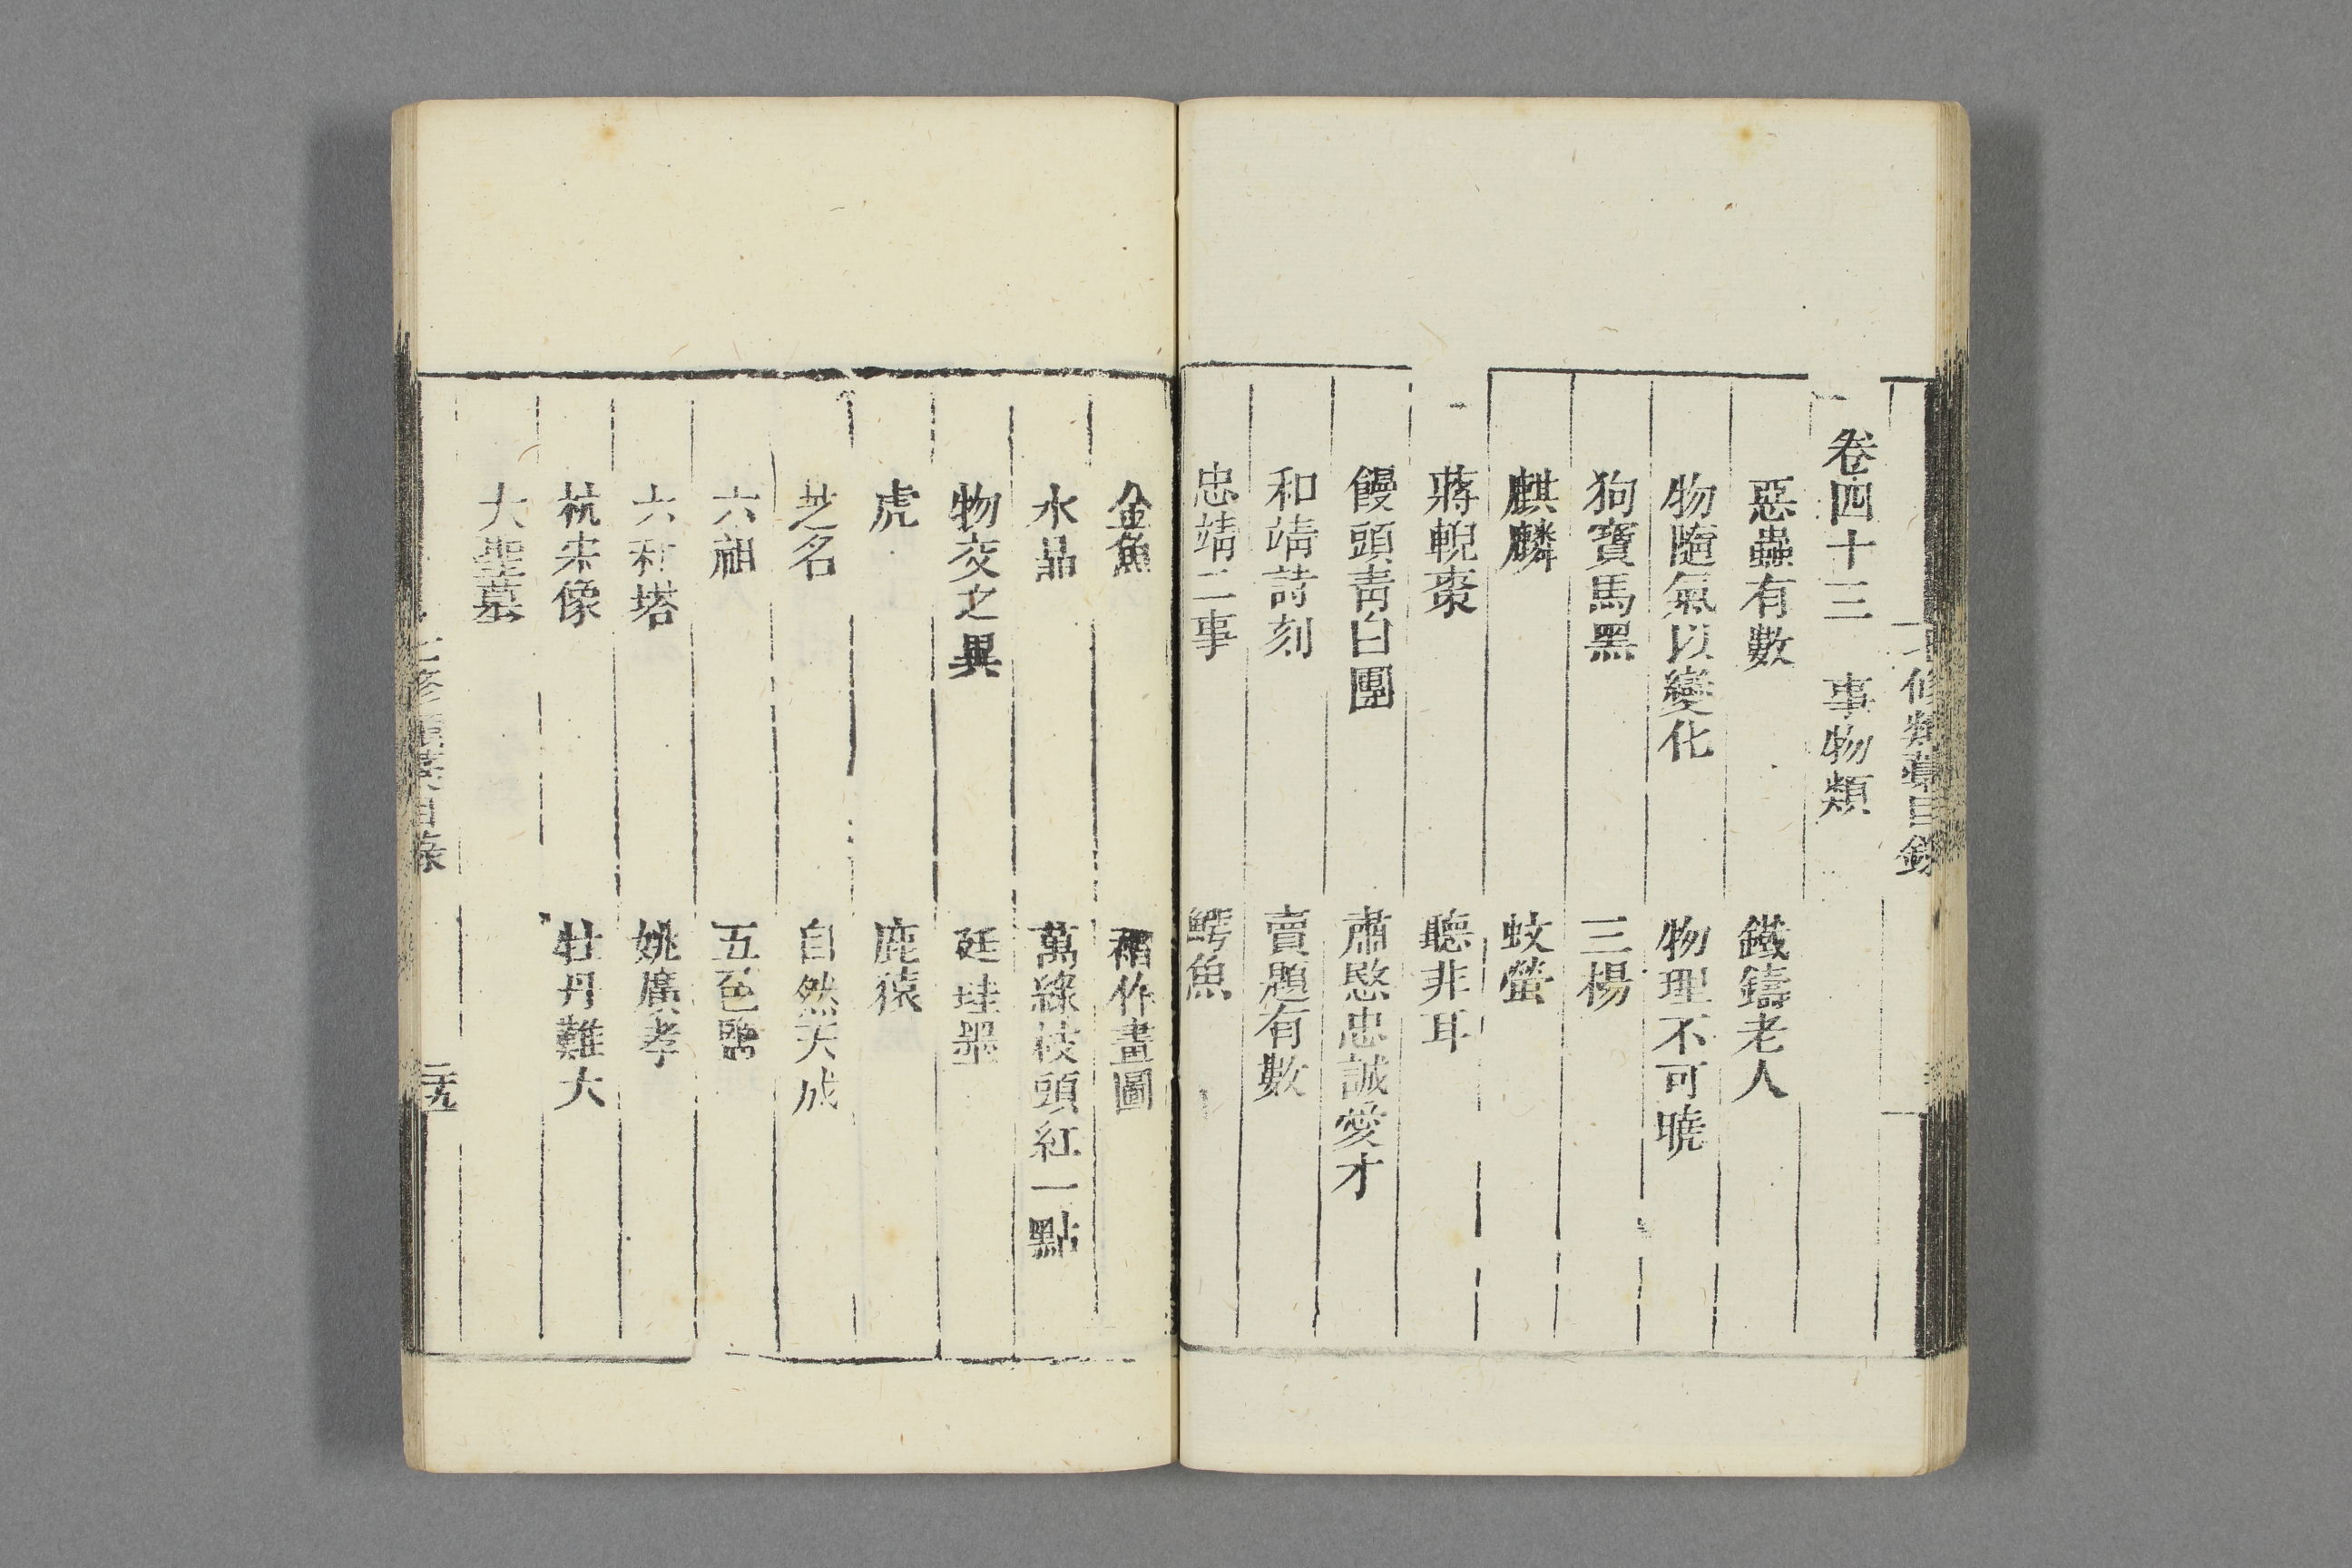 修類藁目錄
卷四十三　事物類
惡蟲有數　鐵鑄老人
物隨氣以變化　物理不可曉
狗寶馬黑　三楊
麒麟　蚊螢
蔣輗棗　聽非耳
饅頭青白團　肅愍忠誠愛才
和靖詩刻　賣題有數
忠靖二事　鰐魚
金魚　作畫圖
水晶　萬綠枝頭紅一點
物交之異　廷珪墨
虎　鹿猿
芝名　自然天成
六祖　五色鹽
六和塔　姚廣孝
杭宋像　牡丹難大
大聖墓
七修類藁目錄　二十九